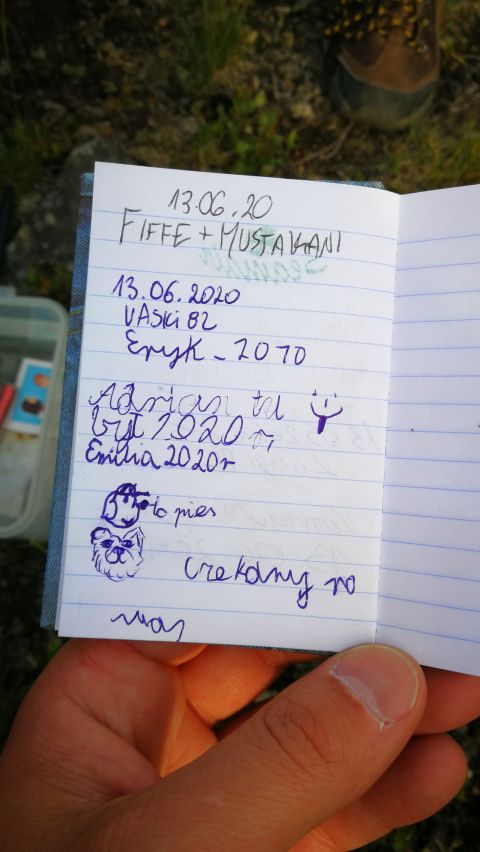 13.06.20
FIFFE + MUSTAKANI
13.06.2020
VASKI 82
Eryk - 2010
Adrian tu
był 2020 r.
Emilia 2020r
to pies
czekamy na
was